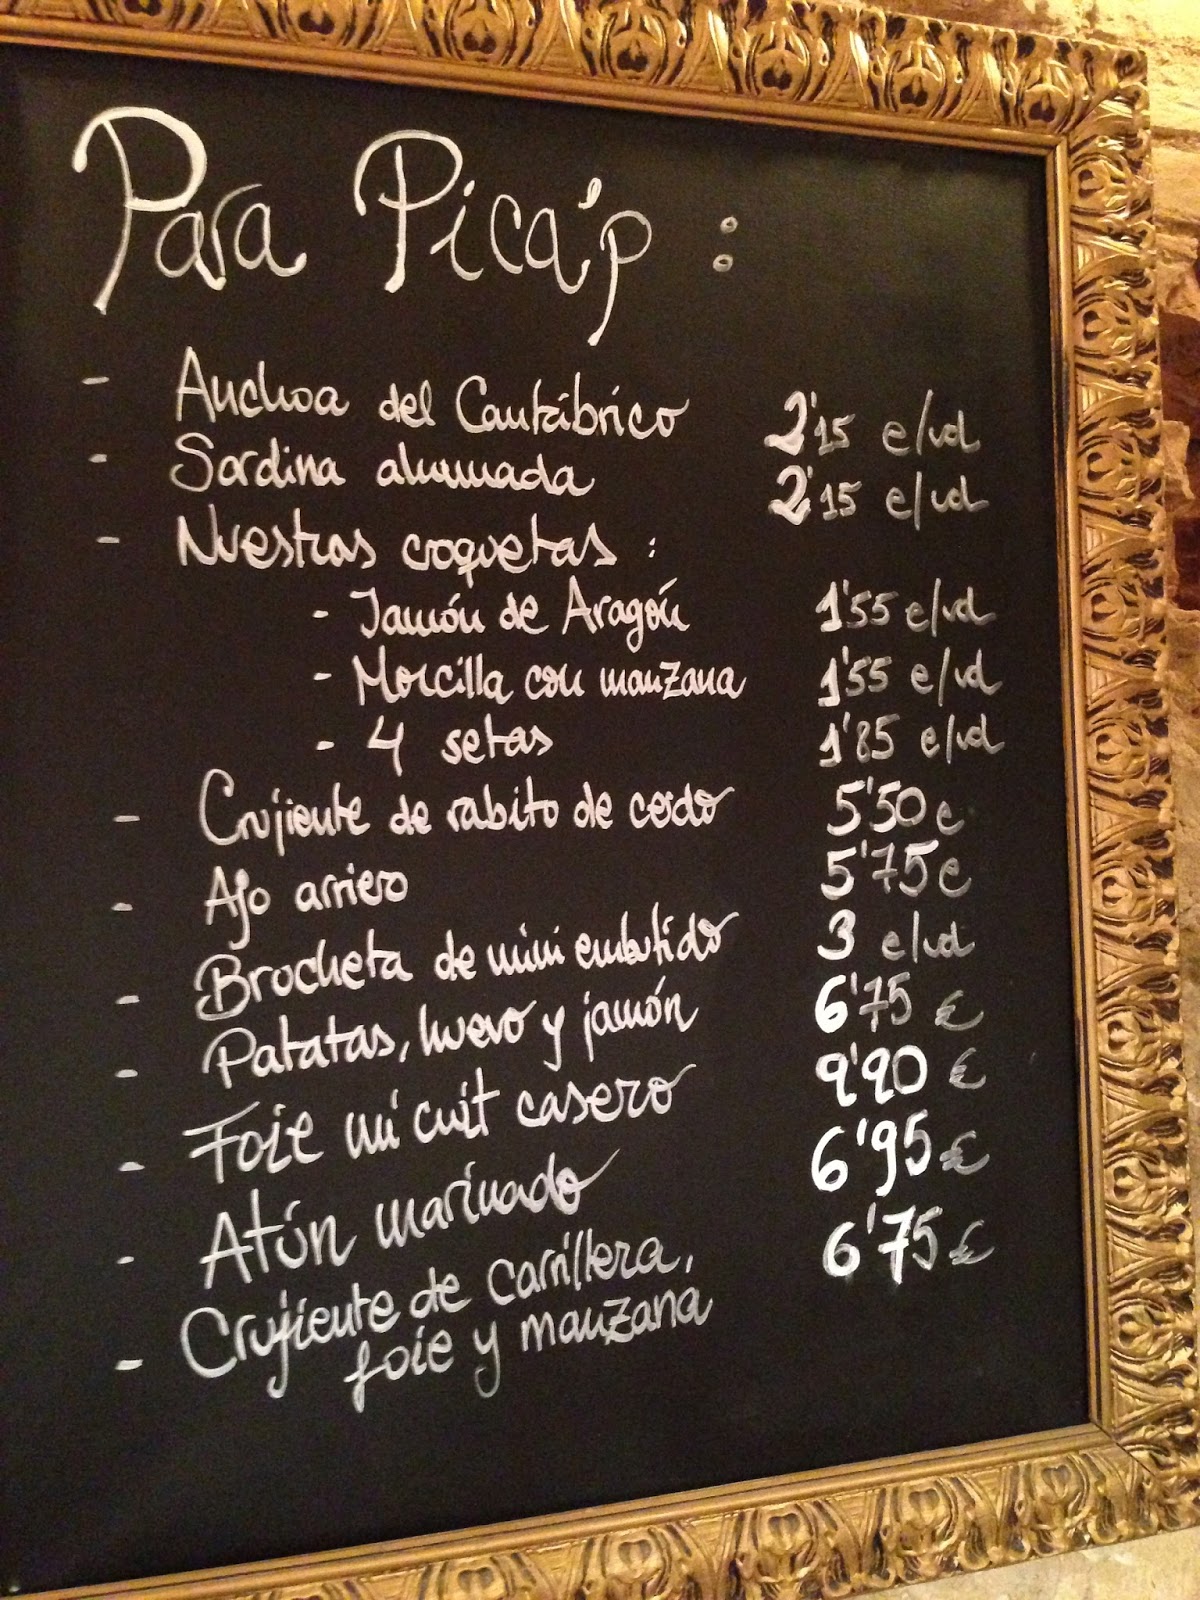 Para Pica'p :
- Anchoa del Cantábrico 2'15 €/ud
- Sardina ahumada 2'15 €/ud
- Nuestras croquetas :
- Jamón de Aragón 1'55 €/ud
- Morcilla con manzana 1'55 €/ud
- 4 setas 1'85 €/ud
- Crujiente de rabito de cerdo 5'50 €
- Ajo arriero 5'75 €
- Brocheta de mini embutido 3 €/ud
- Patatas, huevo y jamón 6'75 €
- Foie mi cuit casero 9'90 €
- Atún marinado 6'95 €
- Crujiente de carrillera, 6'75 €
foie y manzana